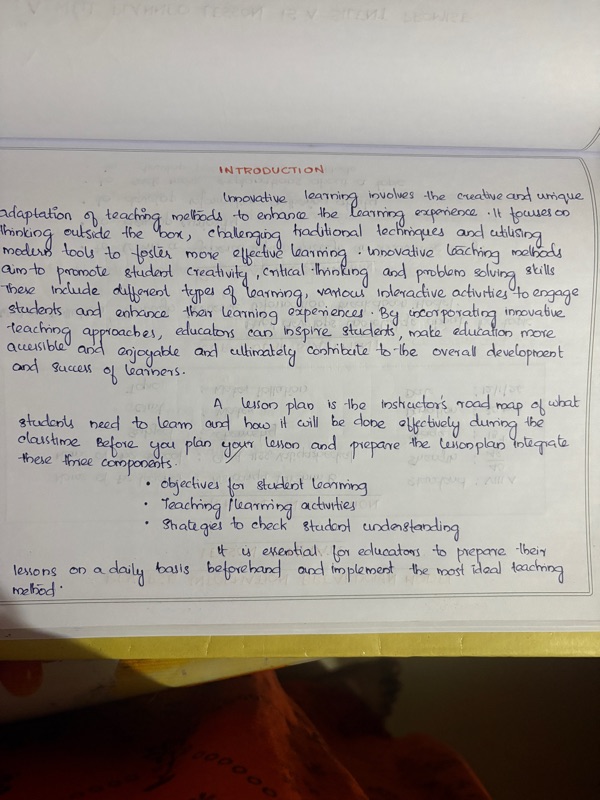 INTRODUCTION
Innovative learning involves the creative and unique
adaptation of teaching methods to enhance the learning experience. It focuses on
thinking outside the box, challenging traditional techniques and utilising
modern tools to foster more effective learning. Innovative teaching methods
aim to promote student creativity, critical thinking and problem solving skills
These include different types of learning, various interactive activities to engage
students and enhance their learning experiences. By incorporating innovative
teaching approaches, educators can inspire students, make education more
accessible and enjoyable and ultimately contribute to the overall development
and success of learners.
A lesson plan is the instructor's road map of what
students need to learn and how it will be done effectively during the
classtime Before you plan your lesson and prepare the lesson plan integrate
these three components.
• objectives for student learning
• Teaching / learning activities
• Strategies to check student understanding
It is essential for educators to prepare their
lessons on a daily basis beforehand and implement the most ideal teaching
method.